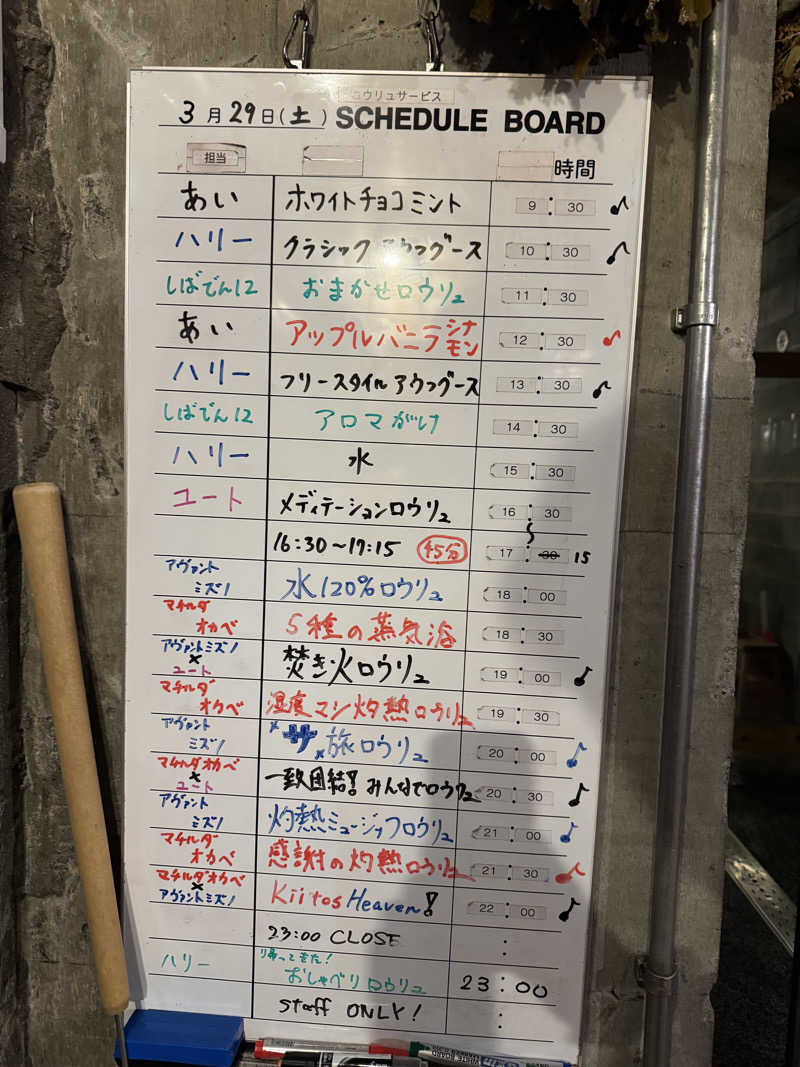 ロウリュサービス
3月29日(土) SCHEDULE BOARD
担当 時間
あい ホワイトチョコミント 9:30
ハリー クラシックアウフグース 10:30
しばでん12 おまかせロウリュ 11:30
あい アップルバニラシナモン 12:30
ハリー フリースタイルアウフグース 13:30
しばでん12 アロマがけ 14:30
ハリー 水 15:30
ユート メディテーションロウリュ 16:30
16:30~17:15 45分 17:30 15
アヴァント
ミズノ 水120%ロウリュ 18:00
マチルダ
オカベ 5種の蒸気浴 18:30
アヴァントミズノ
×
ユート 焚き火ロウリュ 19:00
マチルダ
オカベ 湿度マシ灼熱ロウリュ 19:30
アヴァント
ミズノ "サ"旅ロウリュ 20:00
マチルダオカベ
×
ユート 一致団結!みんなでロウリュ 20:30
アヴァント
ミズノ 灼熱ミュージックロウリュ 21:00
マチルダ
オカベ 感謝の灼熱ロウリュ 21:30
マチルダオカベ
×
アヴァントミズノ Kiitos Heaven! 22:00
23:00 CLOSE :
帰ってきた!
ハリー おしゃべりロウリュ 23:00
staff ONLY! :